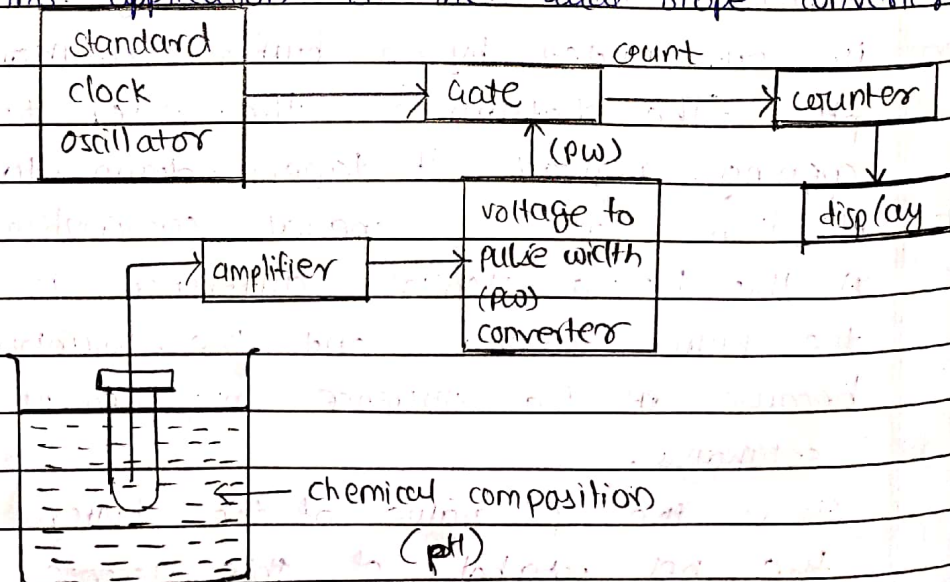 application
slope
standard
clock
oscillator
Gate
count
counter
(PW)
display
voltage to
pulse width
(PW)
converter
amplifier
chemical composition
(pH)